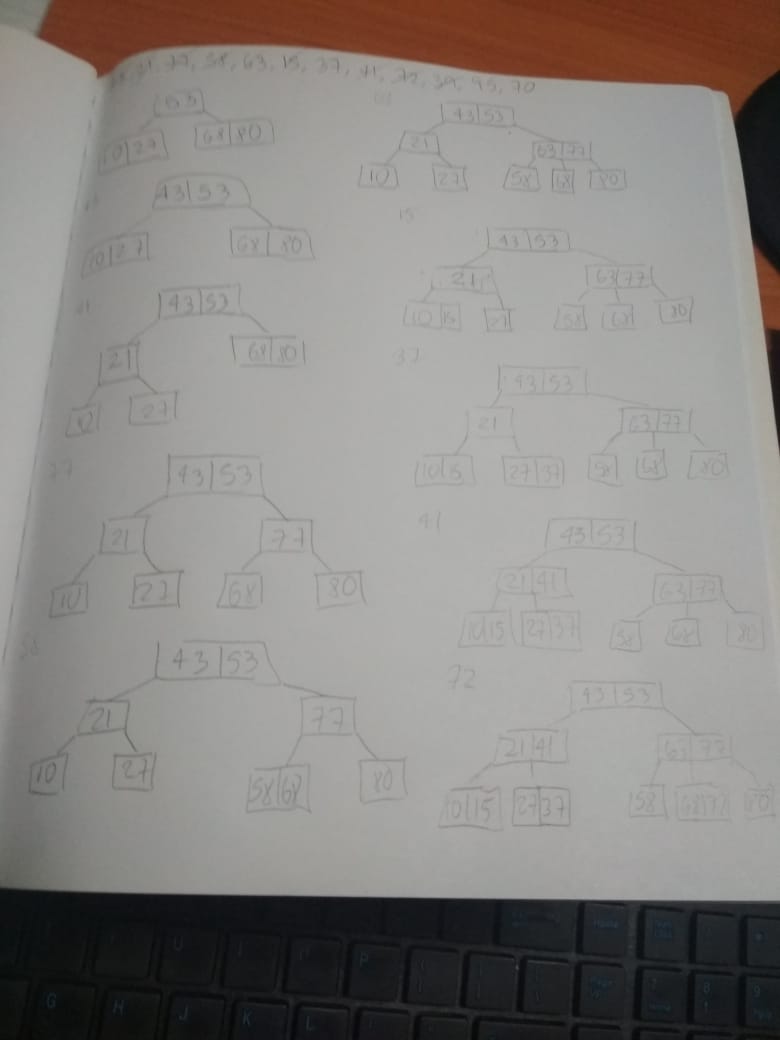 21, 77, 58, 63, 15, 37, 41, 72, 39, 95, 70
53
10|27 68|80
43|53
10|27 68|80
43|53
21 68|80
10 27
77
43|53
21 77
10 27 68 80
58
43|53
21 77
10 27 58|68 80
63
43|53
21 63|77
10 27 58 68 80
15
43|53
21 63|77
10|15 27 58 68 80
37
43|53
21 63|77
10|15 27|37 58 68 80
41
43|53
21|41 63|77
10|15 27|37 58 68 80
72
43|53
21|41 63|77
10|15 27|37 58 68|72 80